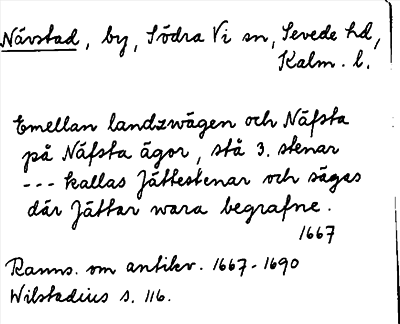 Nävstad, by, Södra Vi sn, Sevede hd,
Kalm. l.
Emellan landzwägen och Näfsta
på Näfsta ägor, stå 3. stenar
--- kallas Jättestenar och sägas
där Jättar wara begrafne.
1667
Ranns. om antikv. 1667-1690
Wilstadius s. 116.